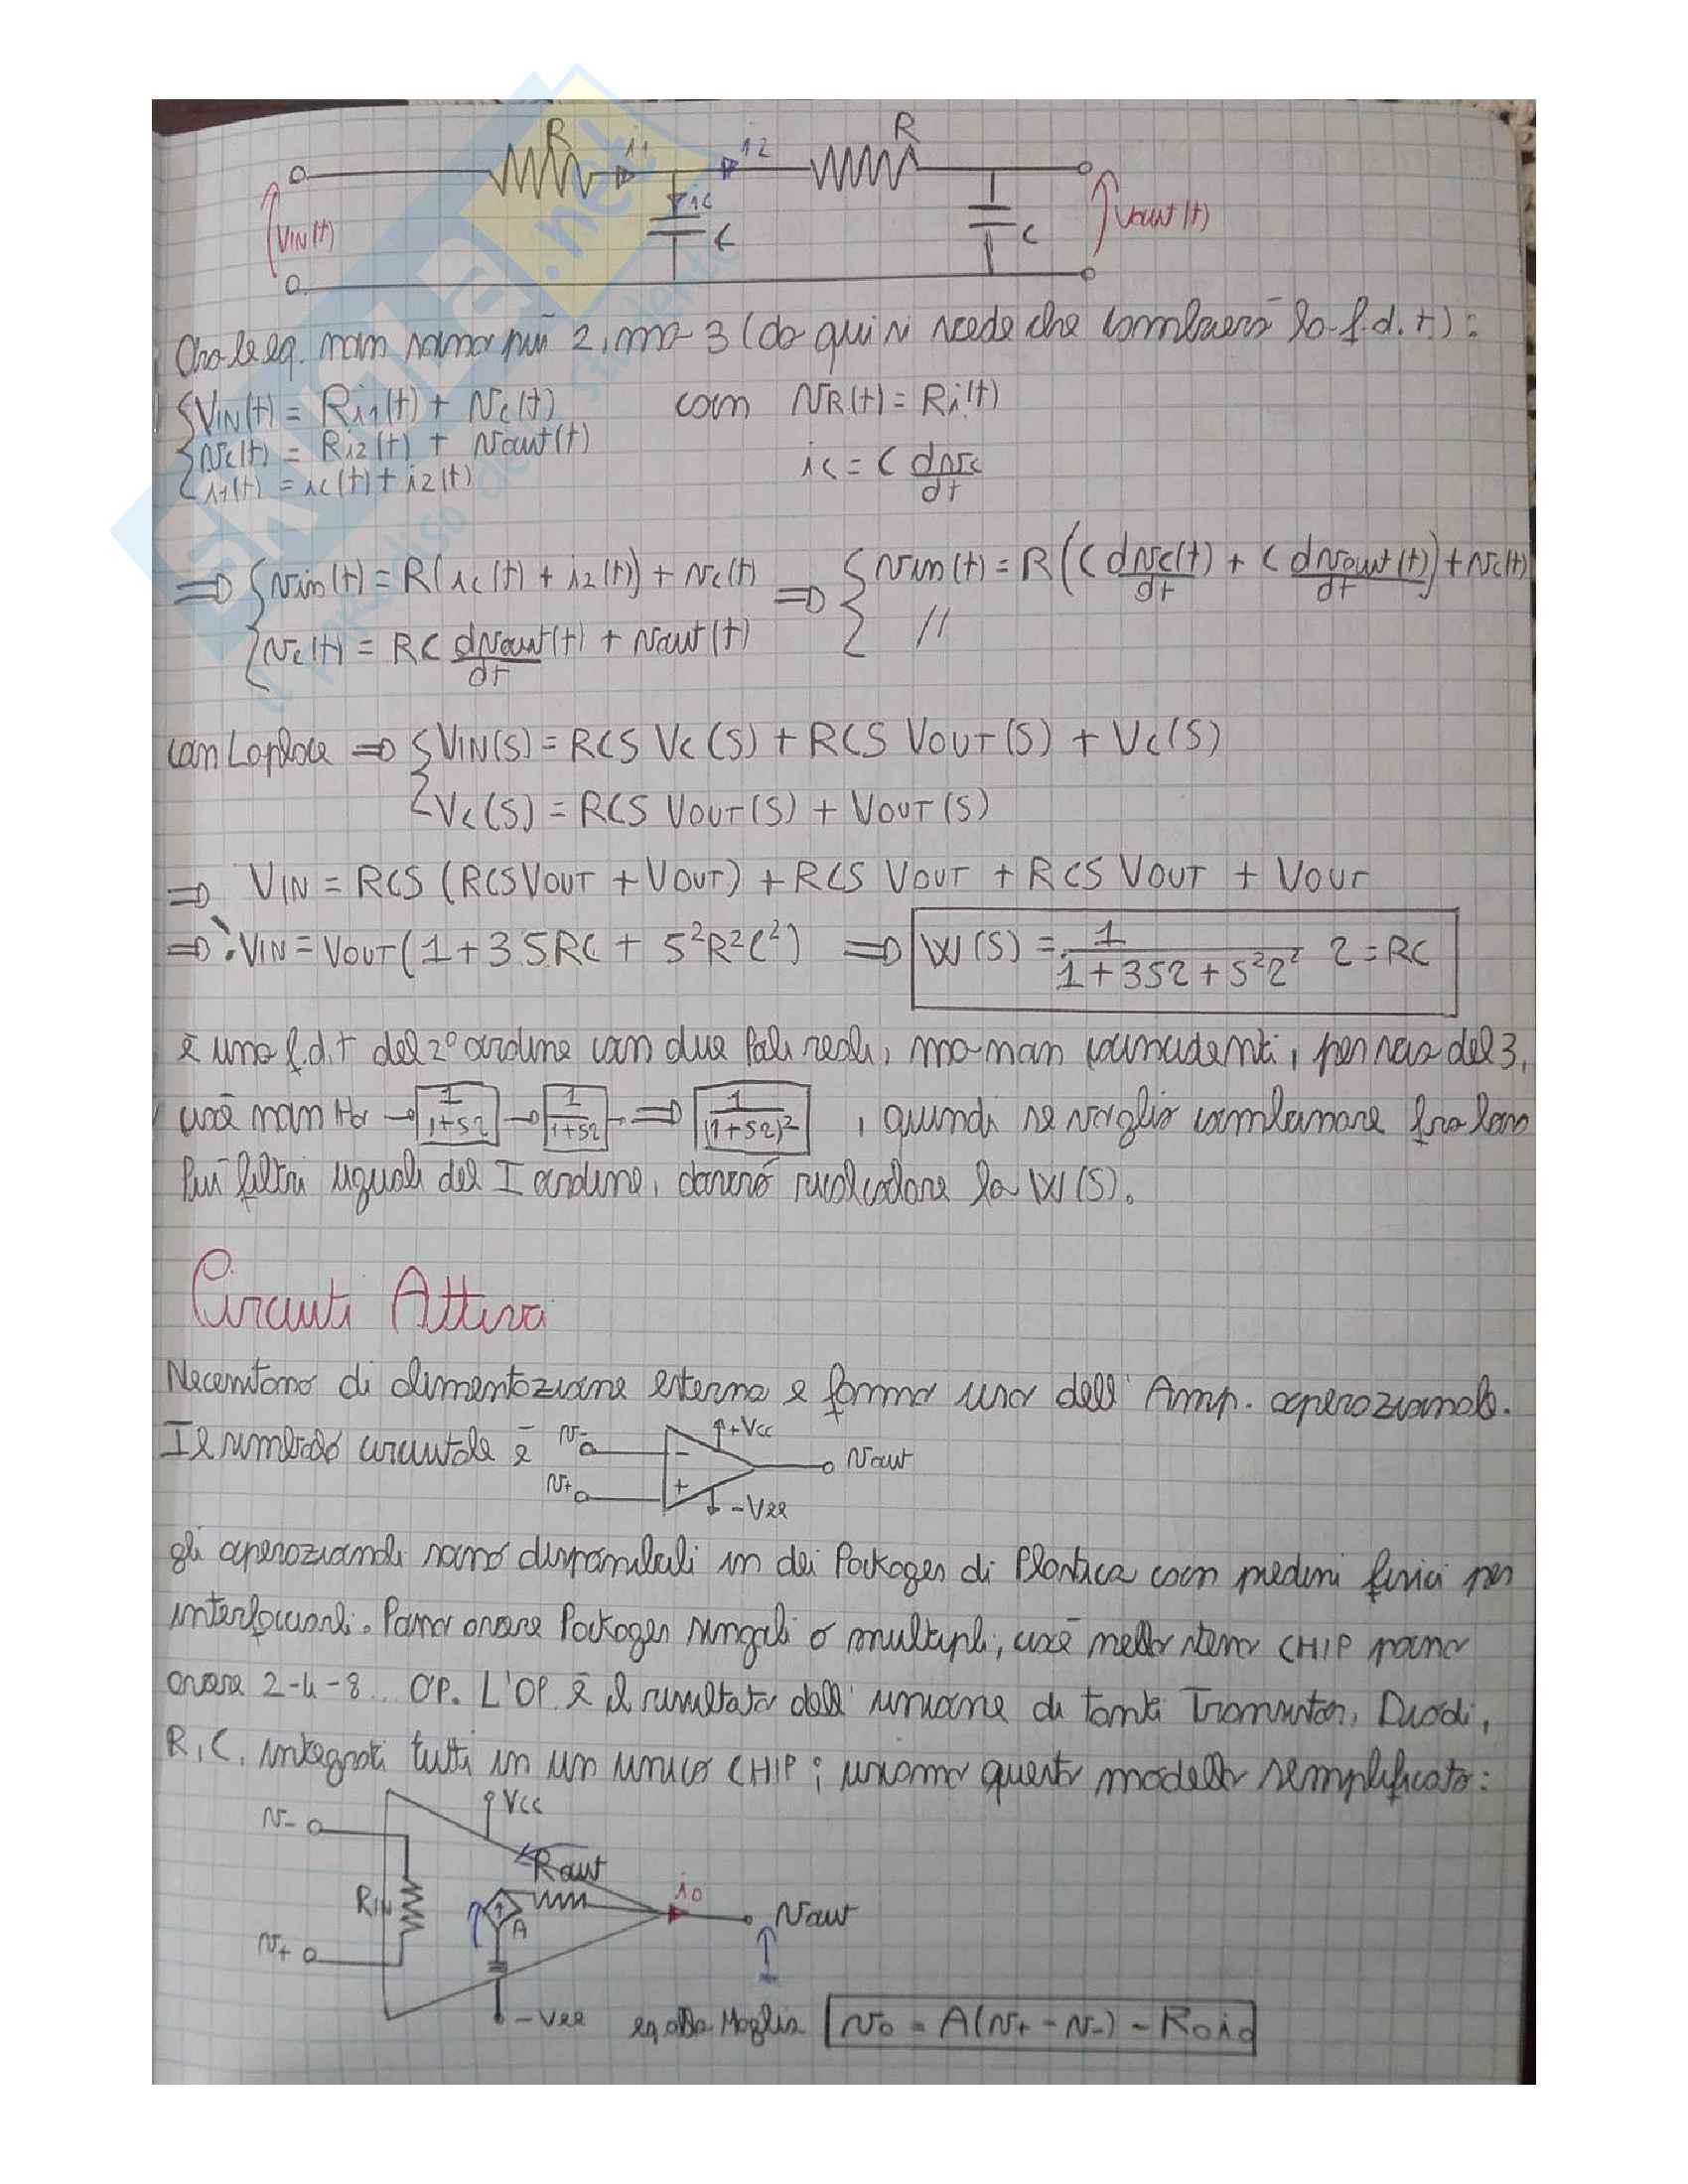 R i1 i2 R
VIN(t) ic C C Vout(t)
Ora le eq. non sono più 2, ma 3 (da qui si vede che cambierà la f.d.t):
{VIN(t) = Ri1(t) + vc(t) con vR(t) = Ri(t)
{vc(t) = Ri2(t) + vout(t)
{i1(t) = ic(t) + i2(t) ic = C dvc/dt
=> {vin(t) = R(ic(t) + i2(t)) + vc(t) => {vin(t) = R(C dvc(t)/dt + C dvout(t)/dt) + vc(t)
{vc(t) = RC dvout(t)/dt + vout(t) //
con Laplace => {VIN(S) = RCS Vc(S) + RCS VOUT(S) + Vc(S)
{Vc(S) = RCS VOUT(S) + VOUT(S)
=> VIN = RCS (RCS VOUT + VOUT) + RCS VOUT + RCS VOUT + VOUT
=> VIN = VOUT(1 + 3SRC + S²R²C²) => W(S) = 1/(1 + 3Sτ + S²τ²) τ = RC
è una f.d.t del 2° ordine con due Poli reali, ma non coincidenti, per via del 3,
cioè non ho → 1/(1+Sτ) → 1/(1+Sτ) => 1/(1+Sτ)² , quindi se voglio combinare fra loro
più filtri uguali del I ordine, dovrò ricalcolare la W(S).
Circuiti Attivi
Necessitano di alimentazione esterna e fanno uso dell' Amp. operazionale.
Il simbolo circuitale è v- - +Vcc vout
v+ + -Vee
gli operazionali sono disponibili in dei Packages di Plastica con piedini fisici per
interfacciarli. Posso avere Packages singoli o multipli, cioè nello stesso CHIP posso
avere 2-4-8.. OP. L'OP è il risultato dell' unione di tanti Transistor, Diodi,
R, C, integrati tutti in un unico CHIP; usiamo questo modello semplificato:
v- Vcc
Rout
RIN A io vout
v+
-Vee eq alla Maglia vo = A(v+ - v-) - Roio
SKUOLA.net